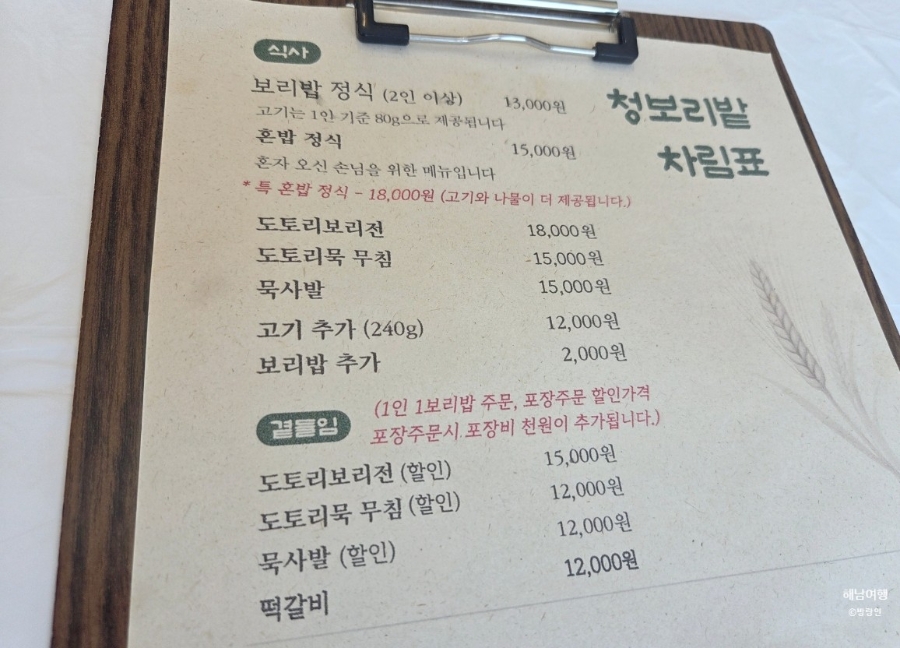 식사
청보리밭
차림표
보리밥 정식 (2인 이상) 13,000원
고기는 1인 기준 80g으로 제공됩니다
혼밥 정식 15,000원
혼자 오신 손님을 위한 메뉴입니다
* 특 혼밥 정식 - 18,000원 (고기와 나물이 더 제공됩니다.)
도토리보리전 18,000원
도토리묵 무침 15,000원
묵사발 15,000원
고기 추가 (240g) 12,000원
보리밥 추가 2,000원
곁들임
(1인 1보리밥 주문, 포장주문 할인가격
포장주문시 포장비 천원이 추가됩니다.)
도토리보리전 (할인) 15,000원
도토리묵 무침 (할인) 12,000원
묵사발 (할인) 12,000원
떡갈비 12,000원
해남여행